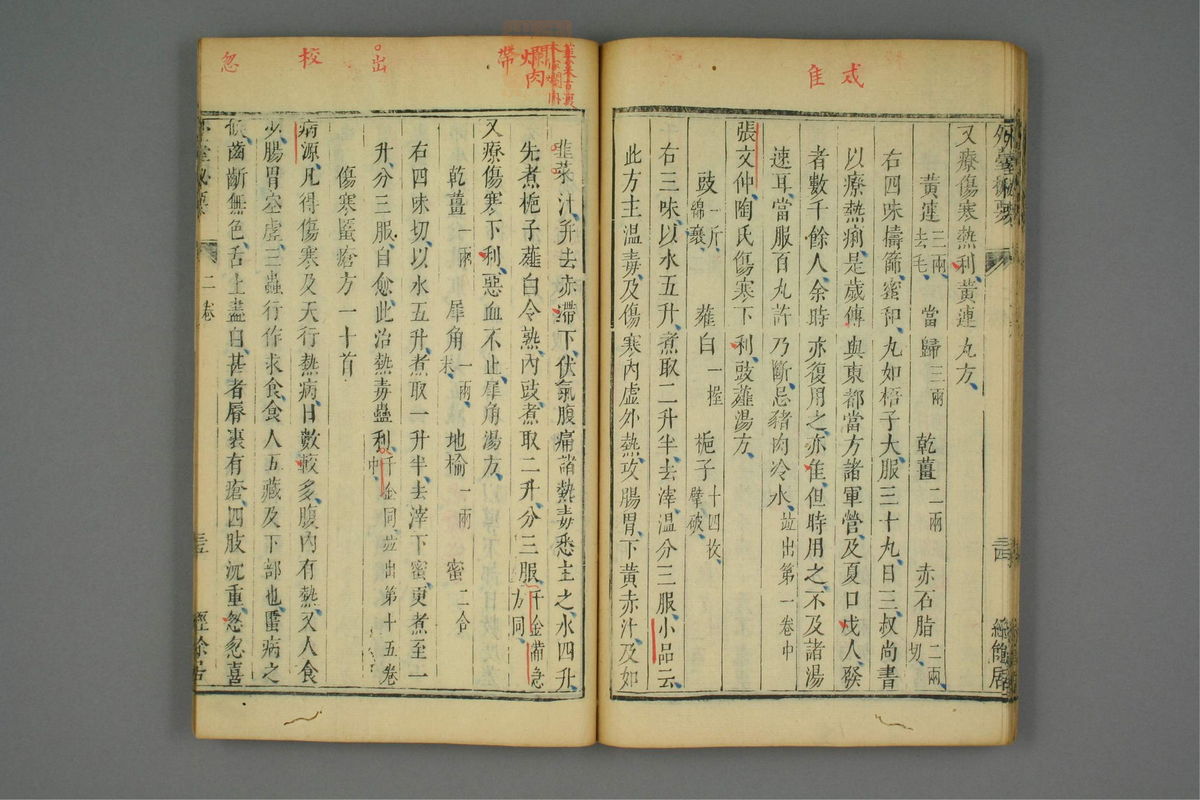 戎 隹
外臺秘要
又療傷寒熱利黃連丸方
黃連三兩去毛 當歸三兩 乾薑二兩 赤石脂二兩切
右四味擣篩蜜和丸如梧子大服三十丸日三叔尚書
以療熱痢是歲傳與東都當方諸軍營及夏口戍人發
者數千餘人余時亦復用之亦隹但時用之不及諸湯
速耳當服百丸許乃斷忌豬肉冷水竝出第一卷中
張文仲陶氏傷寒下利豉薤湯方
豉一斤綿裹 薤白一握 梔子十四枚擘破
右三味以水五升煮取二升半去滓溫分三服小品云
此方主溫毒及傷寒內虛外熱攻腸胃下黃赤汁及如
帶 爛肉 出 校 忽
韭菜汁升去赤滯下伏氣腹痛諸熱毒悉主之水四升
先煮梔子薤白令熟內豉煮取二升分三服千金備急方同
又療傷寒下利惡血不止犀角湯方
乾薑一兩 犀角一兩末 地榆二兩 蜜二合
右四味切以水五升煮取一升半去滓下蜜更煮至一
升分三服自愈此治熱毒蠱利千金同竝出第十五卷中
傷寒䘌瘡方一十首
病源凡得傷寒及天行熱病日數較多腹內有熱又人食
少腸胃空虛三蟲行作求食食人五藏及下部也䘌病之
候齒齗無色舌上盡白甚者脣裏有瘡四肢沉重忽忽喜
二卷
經餘居